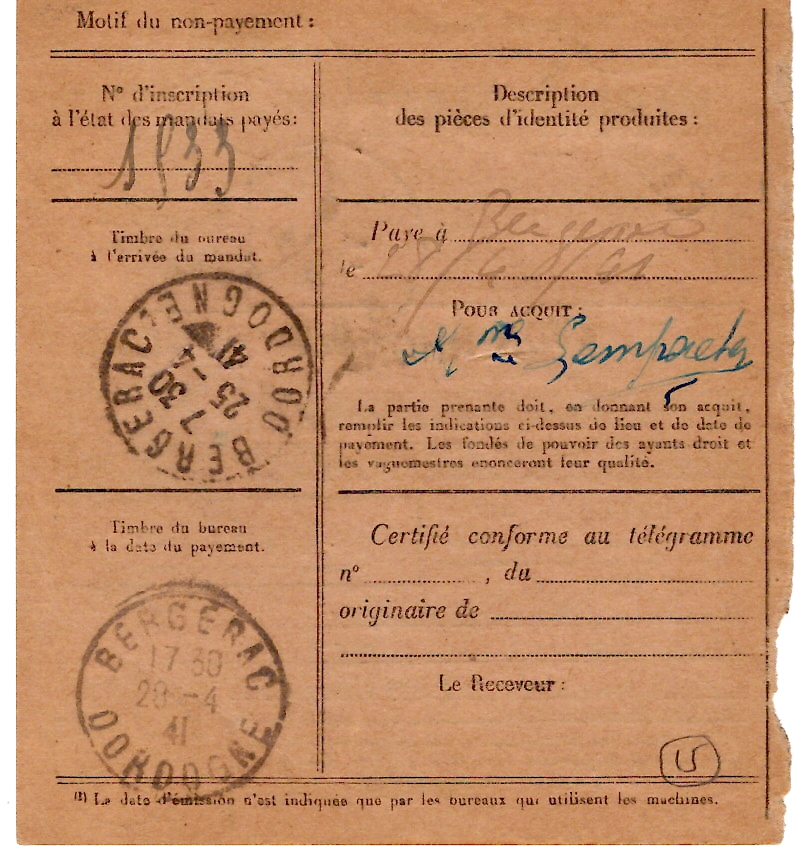 Motif du non-payement :
N° d'inscription
à l'état des mandats payés:
1533
Timbre du bureau
à l'arrivée du mandat.
BERGERAC
7 30
25 -4
41
DORDOGNE
Timbre du bureau
à la date du payement.
BERGERAC
17 30
28 -4
41
DORDOGNE
Description
des pièces d'identité produites :
Paye à Bergerac
le 28/4/41
POUR ACQUIT :
Mme
La partie prenante doit, en donnant son acquit,
remplir les indications ci-dessus de lieu et de date de
payement. Les fondés de pouvoir des ayants droit et
les vaguemestres énonceront leur qualité.
Certifié conforme au télégramme
n° , du
originaire de
Le Receveur :
(1) La date d'émission n'est indiquée que par les bureaux qui utilisent les machines.